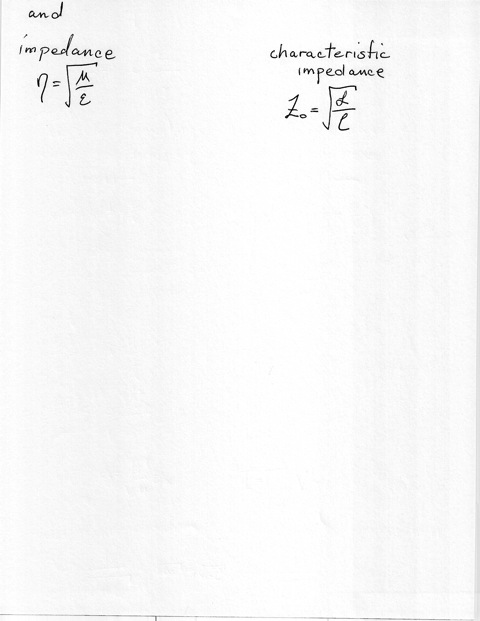 and
impedance
η = √(μ/ε)
characteristic
impedance
Z₀ = √(ℒ/C)